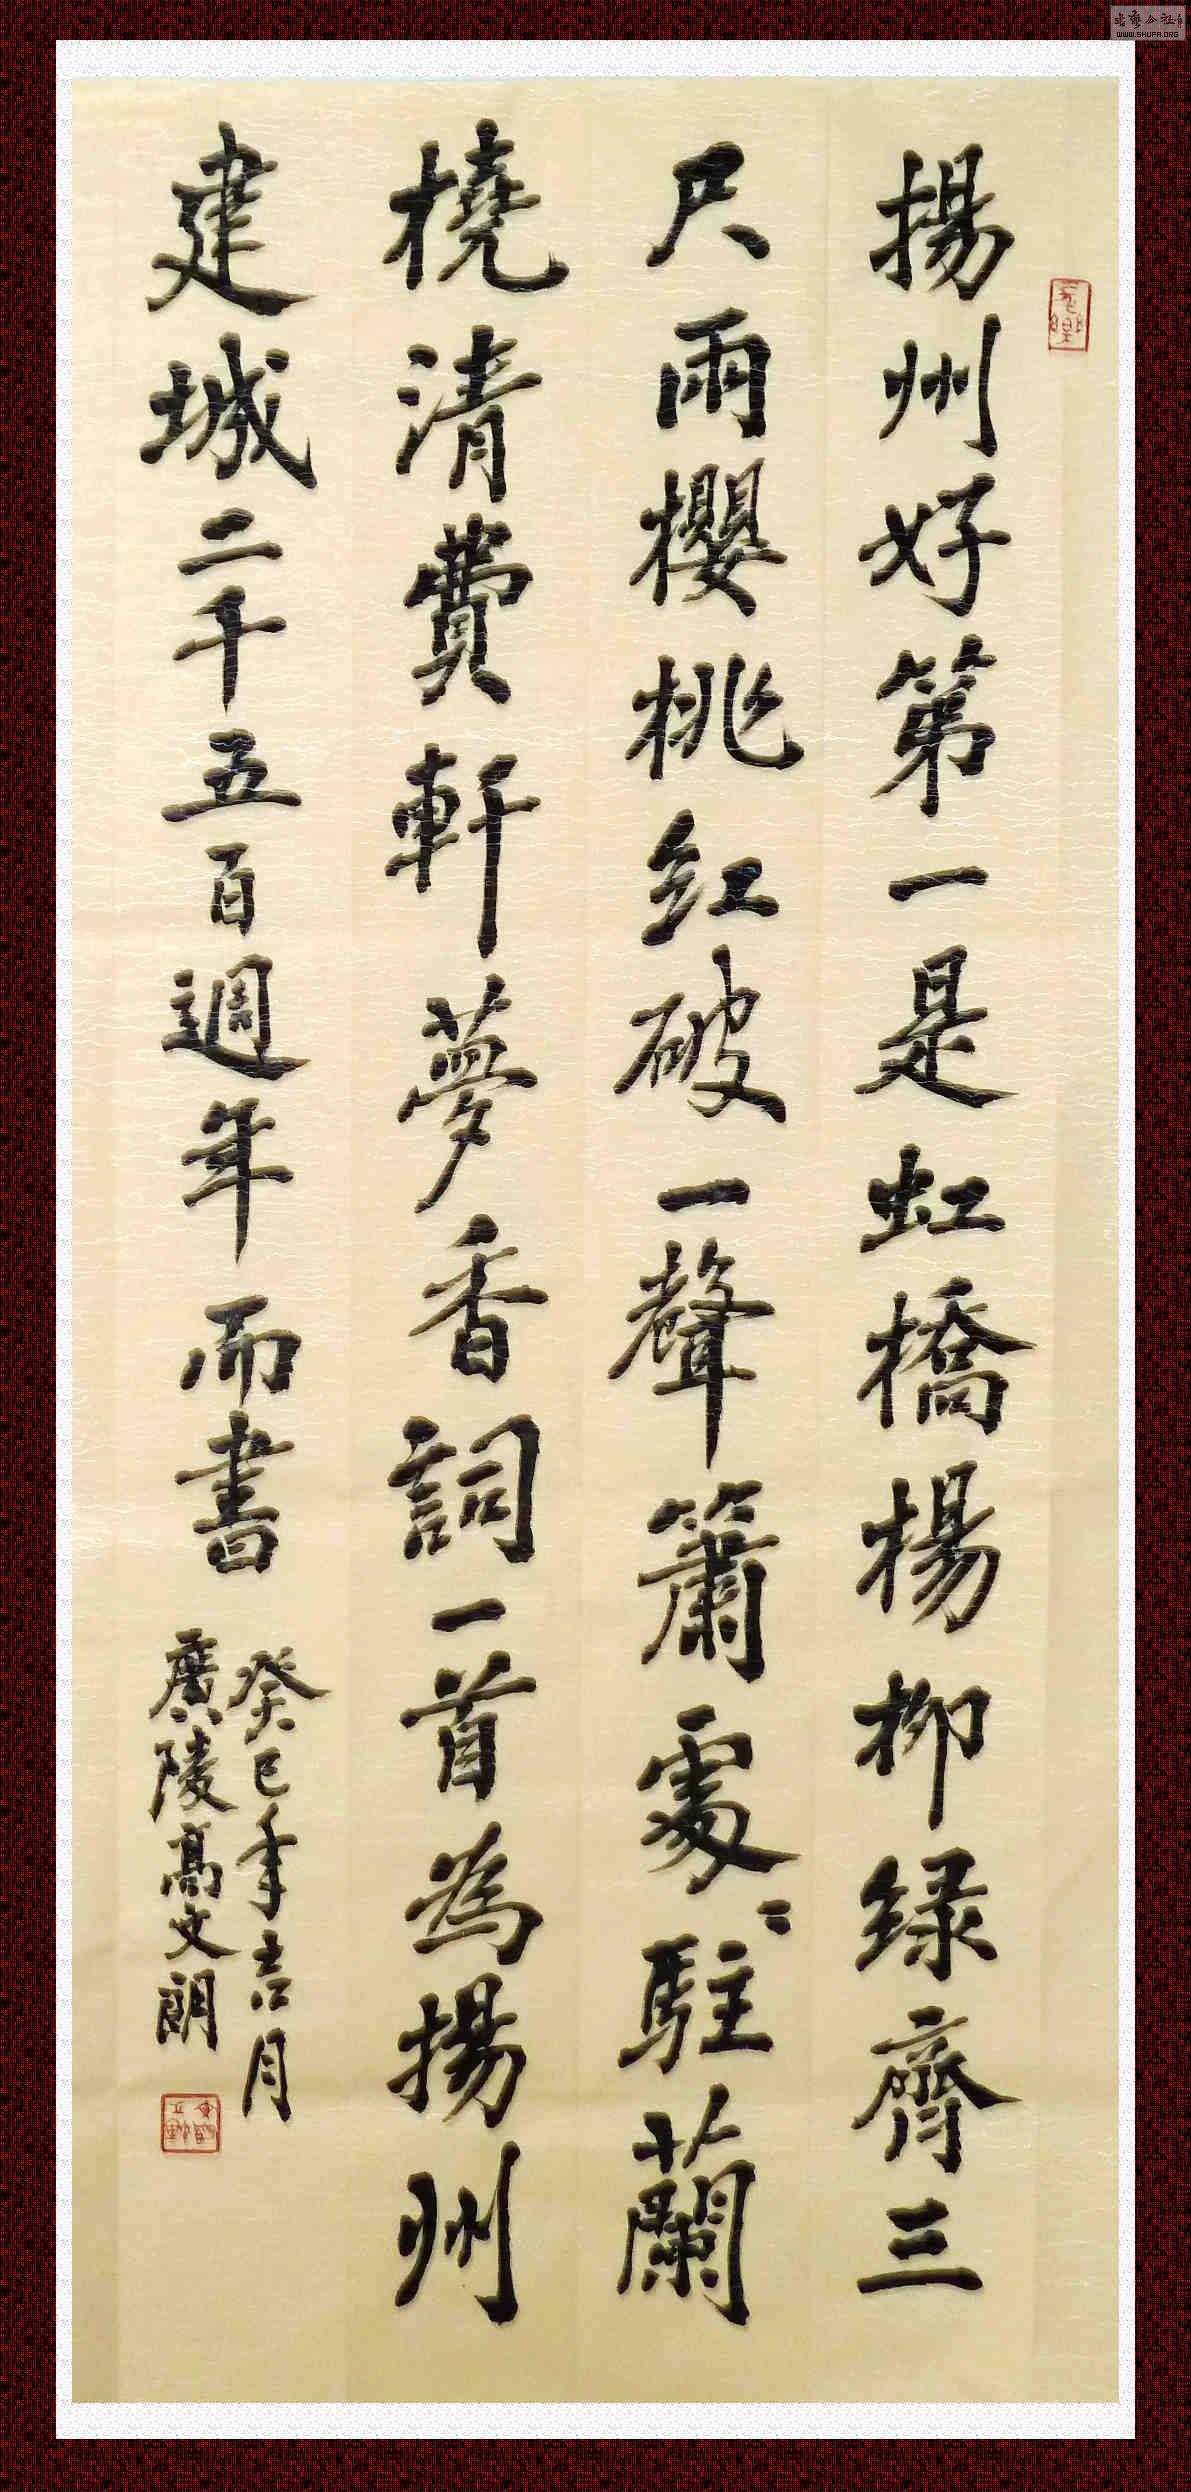 揚州好第一是虹橋楊柳緑齊三
尺雨櫻桃紅破一聲簫處〻駐蘭
橈清費軒夢香詞一首為揚州
建城二千五百週年而書
癸巳年吉月
廣陵高文朗
WWW.SHUFA.ORG